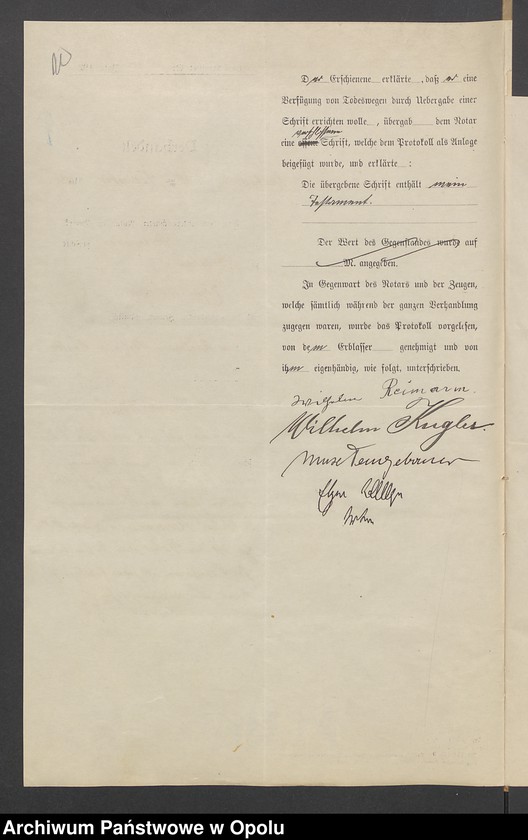 Der Erschienene erklärte, daß er eine
Verfügung von Todeswegen durch Uebergabe einer
Schrift errichten wolle, übergab dem Notar
verschlossene
eine offene Schrift, welche dem Protokoll als Anlage
beigefügt wurde, und erklärte:
Die übergebene Schrift enthält mein
Testament.
Der Wert des Gegenstandes wurde auf
M. angegeben.
In Gegenwart des Notars und der Zeugen,
welche sämtlich während der ganzen Verhandlung
zugegen waren, wurde das Protokoll vorgelesen,
von dem Erblasser genehmigt und von
ihm eigenhändig, wie folgt, unterschrieben.
Wilhelm Reimann
Wilhelm Kugler
Notar
Archiwum Państwowe w Opolu